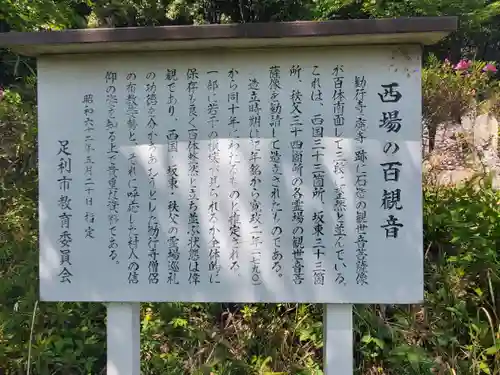 西場の百観音
勧行寺廃寺跡に石造の観世音菩薩像
が百体南面して三段に整然と並んでいる。
これは、西国三十三箇所、坂東三十三箇
所、秩父三十四箇所の各霊場の観世音菩
薩像を勧請して造立されたものである。
造立時期は年銘から寛政二年(一七九〇)
から同十年にわたるものと推定される。
一部に若干の損壊が見られるが全体的に
保存も良く百体整然と立ち並ぶ状態は偉
観であり、西国・坂東・秩父の霊場巡礼
の功徳を分かちあおうとした勧行寺僧侶
の布教姿勢と、それに呼応した村人の信
仰の姿を知る上で貴重な資料である。
昭和六十二年五月二十日指定
足利市教育委員会